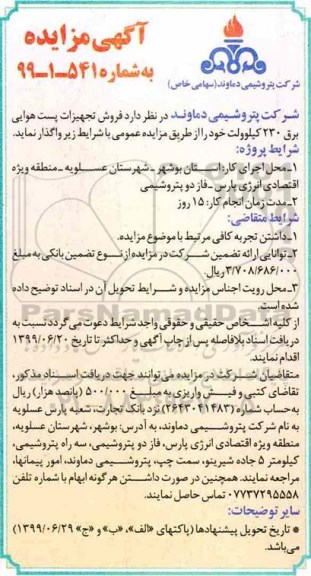 آگهی مزایده
به شماره ۵۴۱-۱-۹۹
شرکت پتروشیمی دماوند (سهامی خاص)
شرکت پتروشیمی دماوند در نظر دارد فروش تجهیزات پست هوایی
برق ۲۳۰ کیلوولت خود را از طریق مزایده عمومی با شرایط زیر واگذار نماید.
شرایط پروژه:
۱-محل اجرای کار: استان بوشهر-شهرستان عسلویه-منطقه ویژه
اقتصادی انرژی پارس-فاز دو پتروشیمی
۲-مدت زمان انجام کار: ۱۵ روز
شرایط متقاضی:
۱-داشتن تجربه کافی مرتبط با موضوع مزایده.
۲-توانایی ارائه تضمین شرکت در مزایده از نوع تضمین بانکی به مبلغ
۳/۷۰۸/۶۸۶/۰۰۰ ریال.
۳-محل رویت اجناس مزایده و شرایط تحویل آن در اسناد توضیح داده
شده است.
از کلیه اشخاص حقیقی و حقوقی واجد شرایط دعوت می گردد نسبت به
دریافت اسناد بلافاصله پس از چاپ آگهی و حداکثر تا تاریخ ۱۳۹۹/۰۶/۲۰
اقدام نمایند.
متقاضیان شرکت در مزایده می توانند جهت دریافت اسناد مذکور،
تقاضای کتبی و فیش واریزی به مبلغ ۵۰۰/۰۰۰ (پانصد هزار) ریال
به حساب شماره (۲۶۴۳۰۴۱۴۸۳) نزد بانک تجارت، شعبه پارس عسلویه
به نام شرکت پتروشیمی دماوند، به آدرس: بوشهر، شهرستان عسلویه،
منطقه ویژه اقتصادی انرژی پارس، فاز دو پتروشیمی، سه راه پتروشیمی،
کیلومتر ۵ جاده شیرینو، سمت چپ، پتروشیمی دماوند، امور پیمانها،
مراجعه نمایند. همچنین در صورت داشتن هرگونه ابهام با شماره تلفن
۰۷۷۳۷۲۹۵۵۵۸ تماس حاصل نمایند.
سایر توضیحات:
* تاریخ تحویل پیشنهادها (پاکتهای «الف»، «ب» و «ج» ۱۳۹۹/۰۶/۲۹)
می باشد.
ParsNamadData